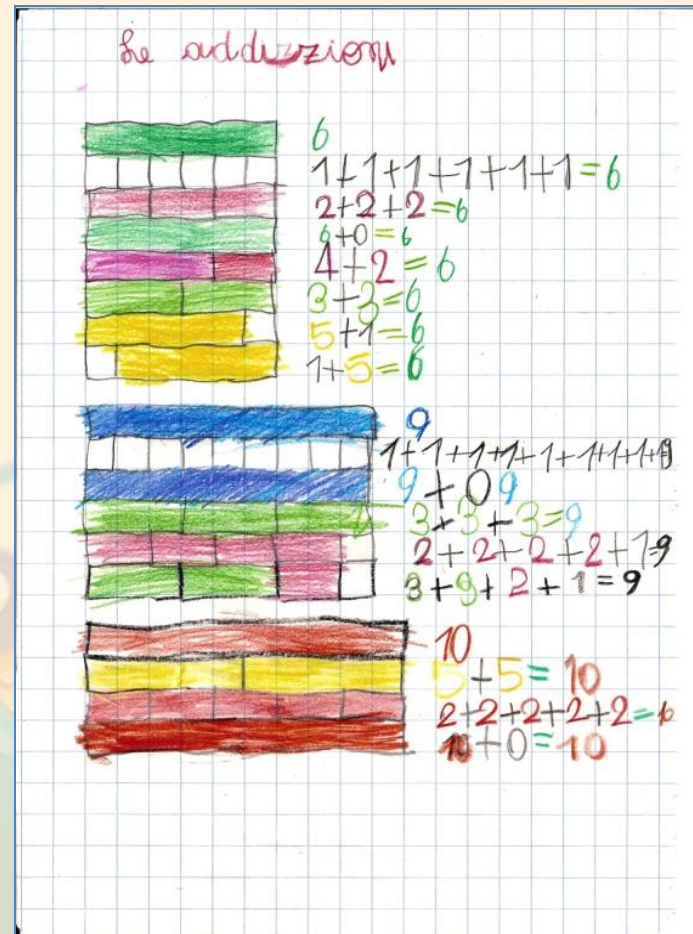 Le addizzioni
6
1+1+1+1+1+1=6
2+2+2=6
6+0=6
4+2=6
3+3=6
5+1=6
1+5=6
9
1+1+1+1+1+1+1+1+1=9
9+0 9
3+3+3=9
2+2+2+2+1=9
3+9+2+1=9
10
5+5=10
2+2+2+2+2=10
10+0=10